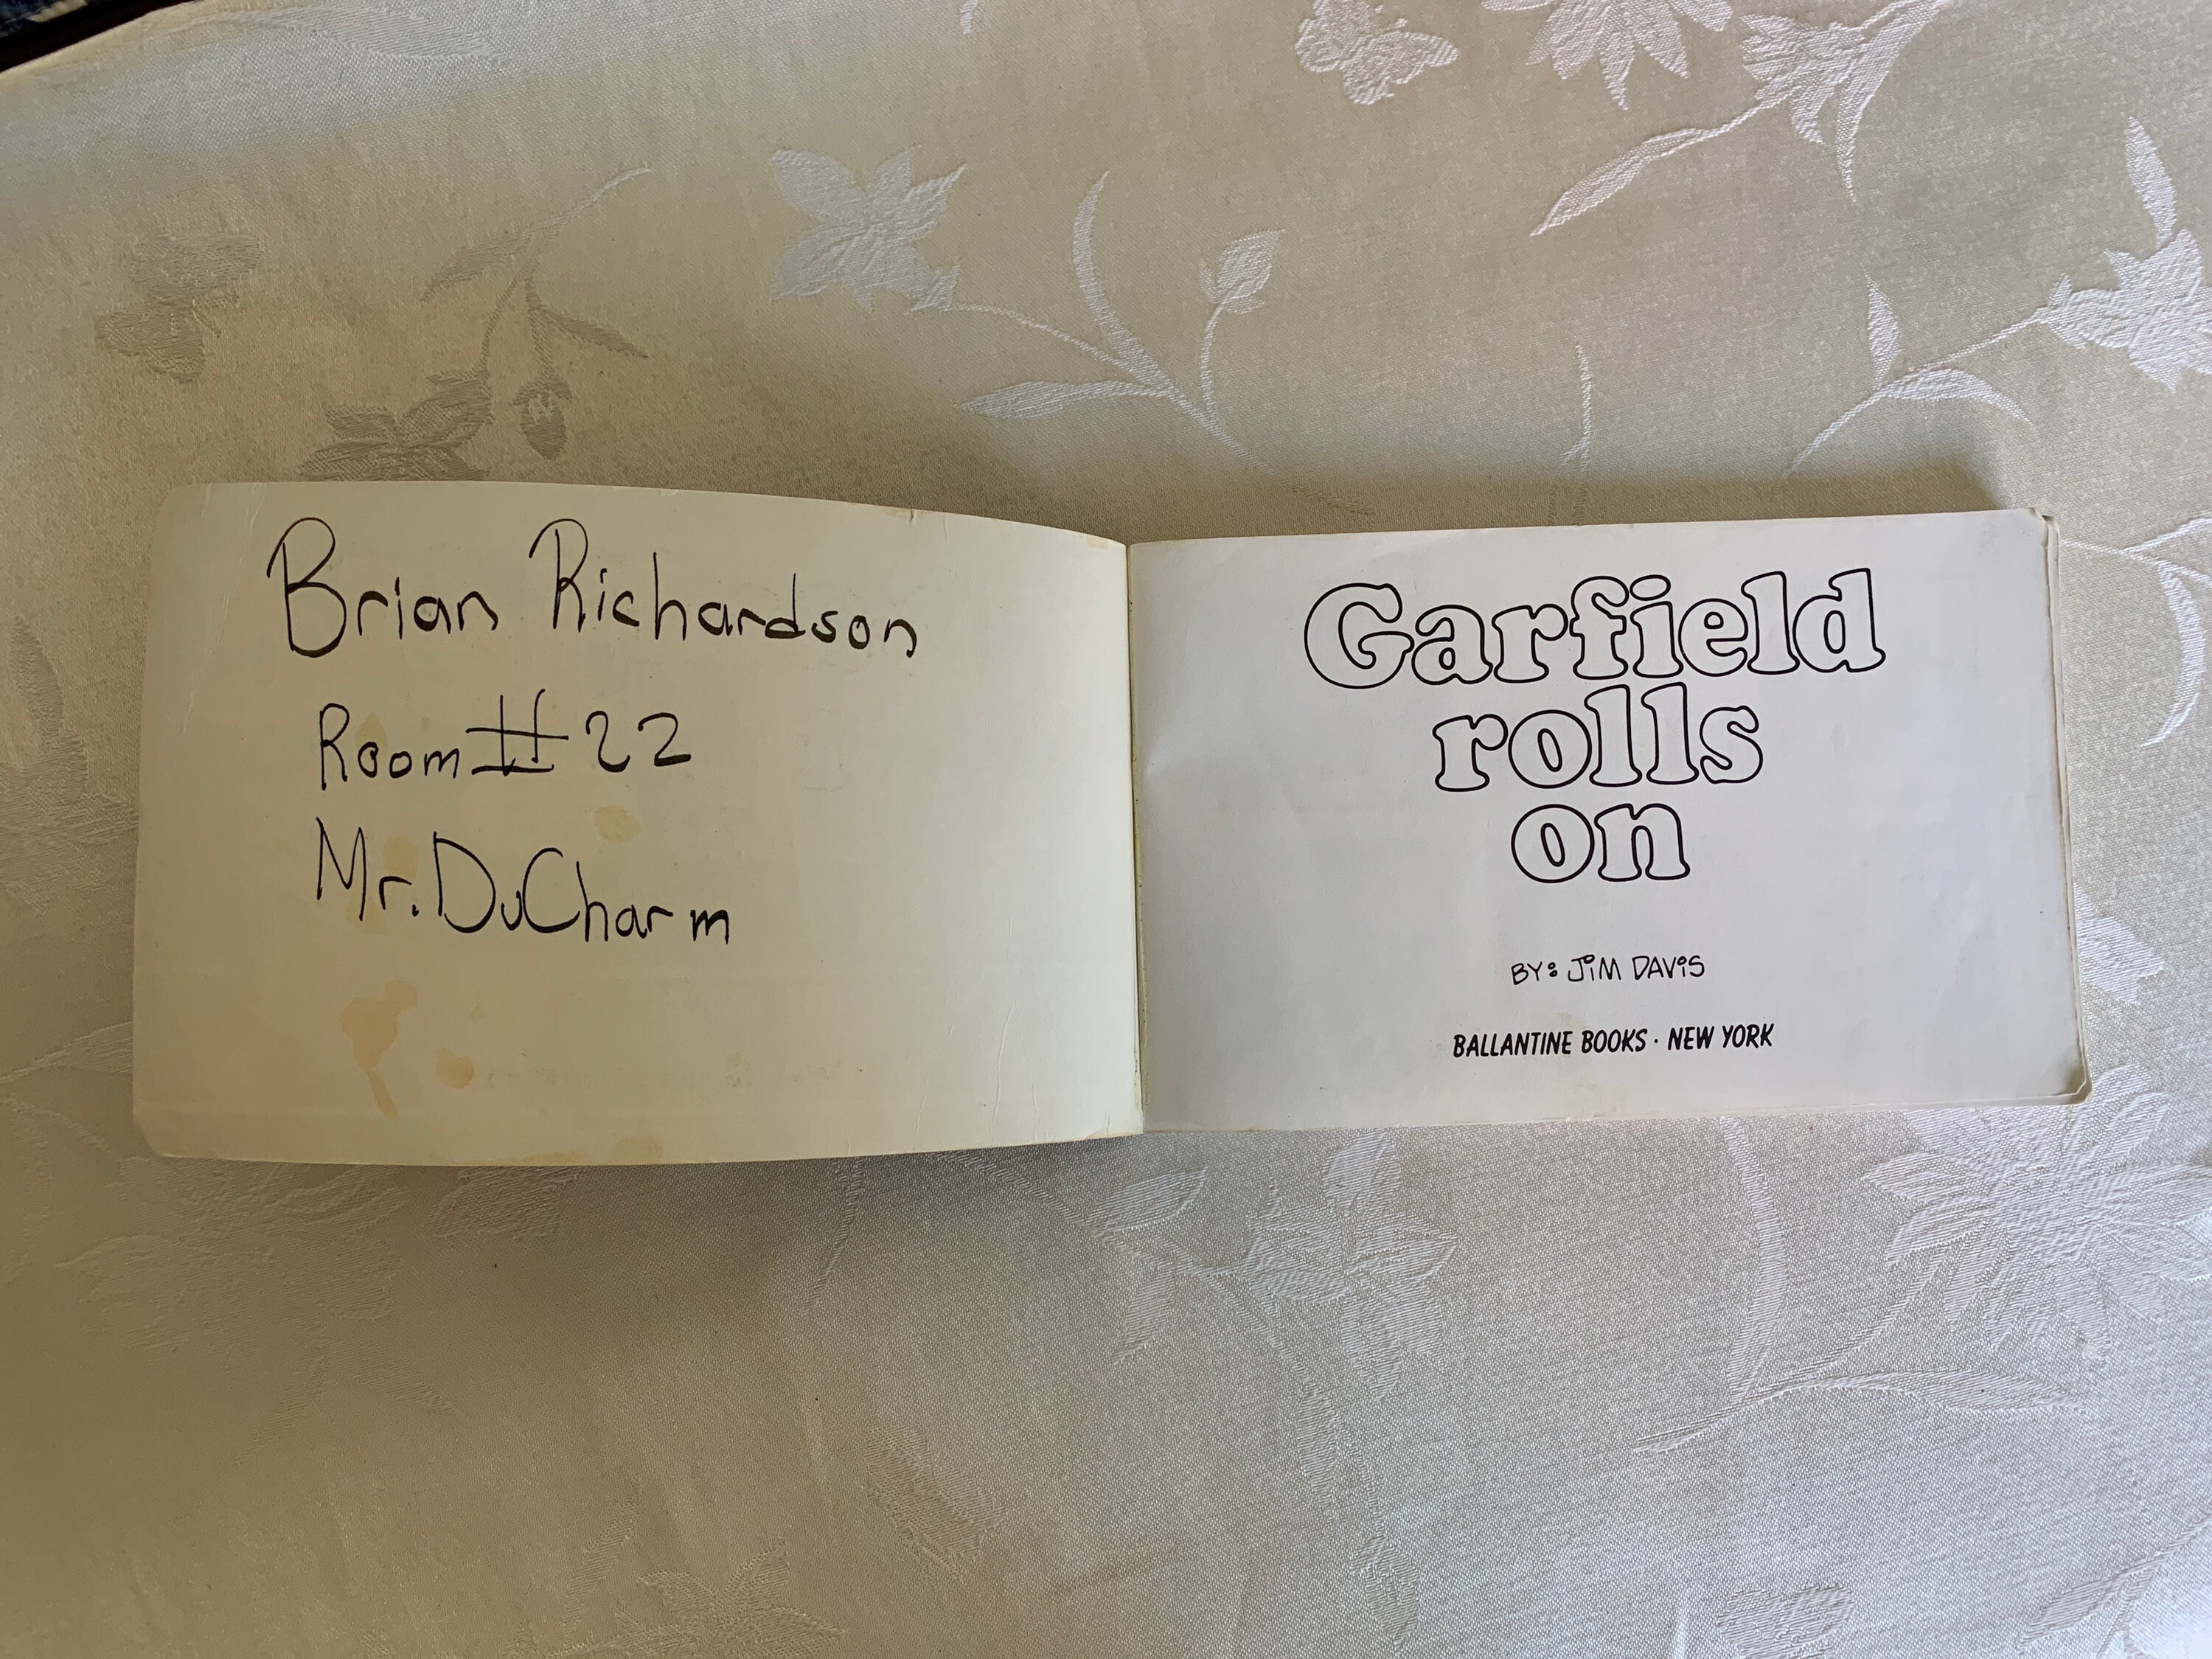 Brian Richardson
Room # 22
Mr. DuCharm
Garfield
rolls
on
BY: JIM DAVIS
BALLANTINE BOOKS · NEW YORK